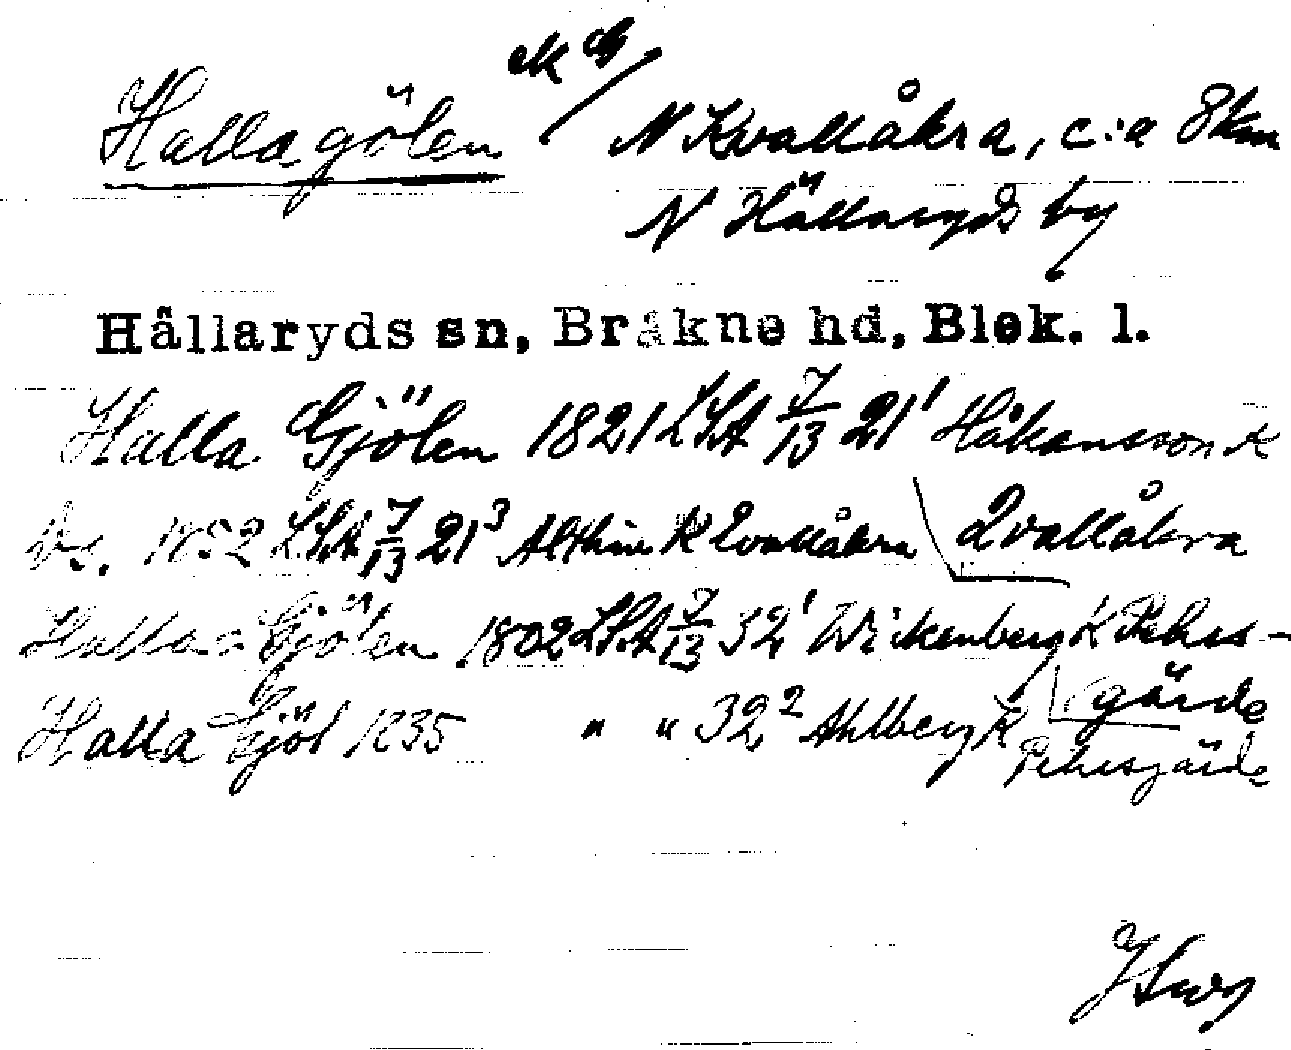 Hallagölen / N Kvallåkra, c:a 8 km
N Hällaryds by
Hällaryds sn, Bräkne hd, Blek. l.
Halla Gjölen 1821 LSA 7/13 21¹ Håkansson K
Qvallåkra
Ds. 1852 LSA 7/13 21³ Althin K Qvallåkra
Halla Gjölen 1802 LSA 7/13 32¹ Wickenberg K Pehrs-
gärde
Halla Gjöl 1835 " " 32² Ahlberg K
Pehrsgärde